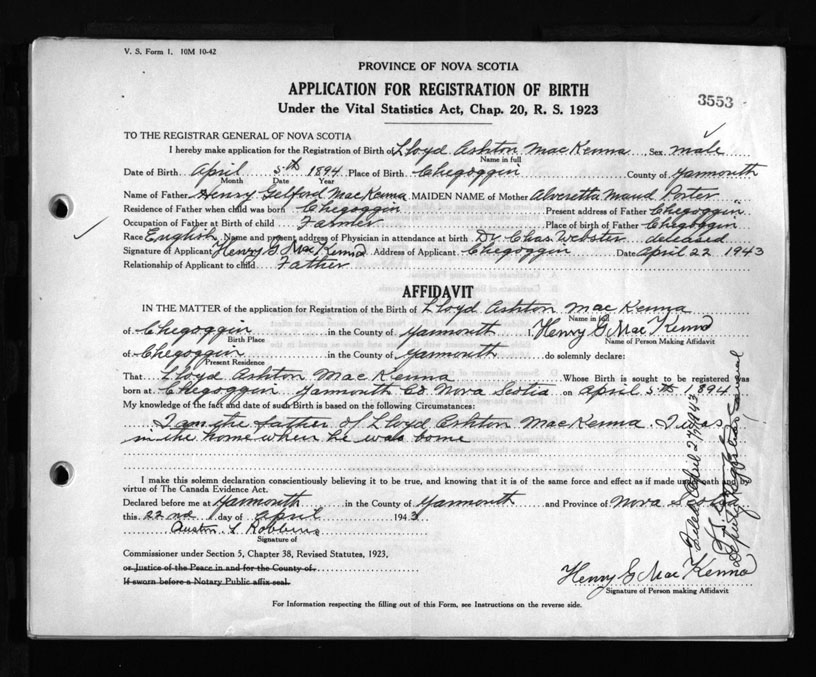 V. S. Form 1. 10M 10-42
PROVINCE OF NOVA SCOTIA
APPLICATION FOR REGISTRATION OF BIRTH
Under the Vital Statistics Act, Chap. 20, R. S. 1923
3553
TO THE REGISTRAR GENERAL OF NOVA SCOTIA
I hereby make application for the Registration of Birth of Lloyd Ashton MacKenna Sex male
Name in full
Date of Birth April 5th 1894 Place of Birth Chegoggin County of Yarmouth
Month Date Year
Name of Father Henry Gelford MacKenna MAIDEN NAME of Mother Alveretta Maud Porter
Residence of Father when child was born Chegoggin Present address of Father Chegoggin
Occupation of Father at Birth of child Farmer Place of birth of Father Chegoggin
Race English Name and present address of Physician in attendance at birth Dr Chas. Webster deceased
Signature of Applicant Henry G MacKenna Address of Applicant Chegoggin Date April 22 1943
Relationship of Applicant to child Father
AFFIDAVIT
IN THE MATTER of the application for Registration of the Birth of Lloyd Ashton MacKenna
Name in full
of Chegoggin in the County of Yarmouth I, Henry G MacKenna
Birth Place Name of Person Making Affidavit
of Chegoggin in the County of Yarmouth do solemnly declare:
Present Residence
That Lloyd Ashton MacKenna Whose Birth is sought to be registered was
born at Chegoggin Yarmouth Co Nova Scotia on April 5th 1894
My knowledge of the fact and date of such Birth is based on the following Circumstances:
I am the father of Lloyd Ashton MacKenna. I was
in the home where he was borne
I make this solemn declaration conscientiously believing it to be true, and knowing that it is of the same force and effect as if made under oath
virtue of The Canada Evidence Act.
Declared before me at Yarmouth in the County of Yarmouth and Province of Nova Scotia
this 22nd day of April 1943
Austin L Robbins
Signature of
Commissioner under Section 5, Chapter 38, Revised Statutes, 1923,
or Justice of the Peace in and for the County of
If sworn before a Notary Public affix seal.
Henry G MacKenna
Signature of Person making Affidavit
For Information respecting the filling out of this Form, see Instructions on the reverse side.
Filed April 27, 1943
Deputy Registrar General